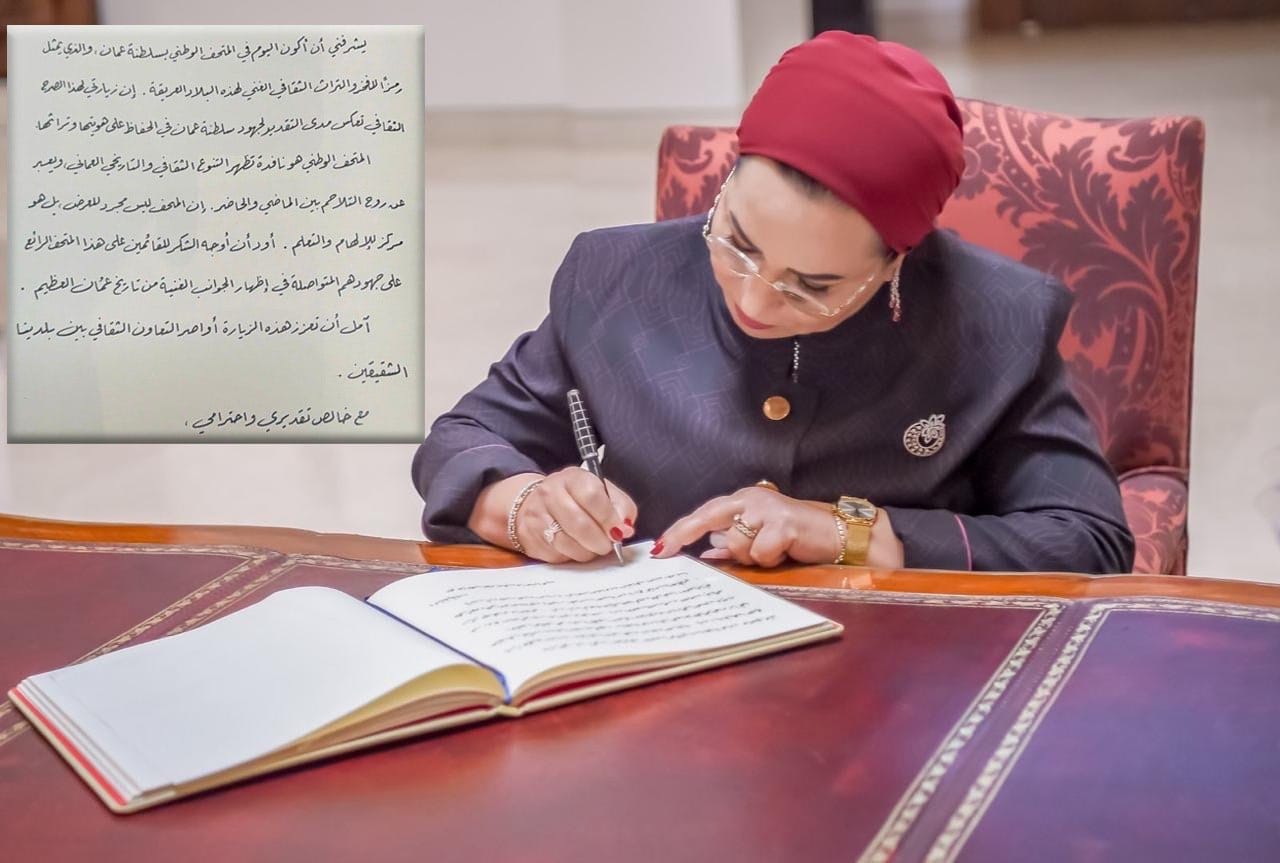 يشرفني أن أكون اليوم في المتحف الوطني بسلطنة عمان، والذي يمثل
رمزاً للفخر والتراث الثقافي الغني لهذه البلاد العريقة . إن زيارتي لهذا الصرح
الثقافي تعكس مدى التقدير لجهود سلطنة عمان في الحفاظ على هويتها وتراثها.
المتحف الوطني هو نافدة تظهر التنوع الثقافي والتاريخي العماني، ويعبر
عن روح التلاحم بين الماضي والحاضر. إن المتحف ليس مجرد للعرض، بل هو
مركز للإلهام والتعلم . أود أن أوجه الشكر للقائمين على هذا المتحف الرائع
على جهودهم المتواصلة في إظهار الجوانب الغنية من تاريخ عُمان العظيم .
آمل أن تعزز هذه الزيارة أواصر التعاون الثقافي بين بلدينا
الشقيقين .
مع خالص تقديري واحترامي ،